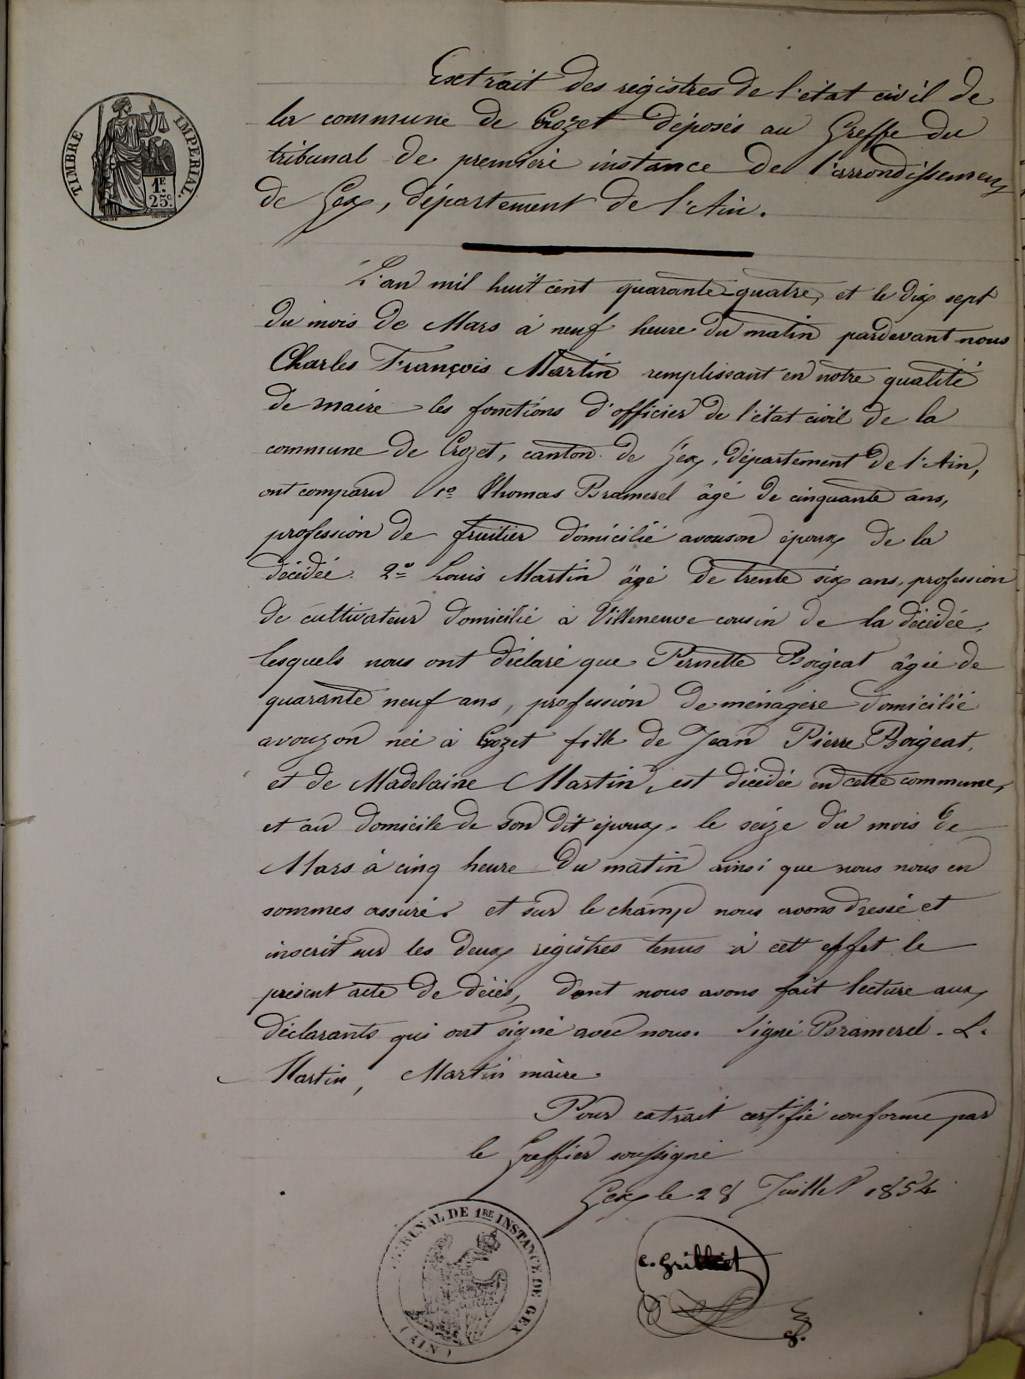 TIMBRE IMPERIAL
1F.
25c.
Extrait des régistres de l'état civil de
la commune de Crozet déposés au Greffe du
tribunal de premiere instance de l'arrondissement
de Gex, département de l'Ain.
L'an mil huit cent quarante-quatre, et le dix sept
du mois de Mars à neuf heure du matin pardevant nous
Charles François Martin remplissant en notre qualité
de maire les fonctions d'officier de l'état civil de la
commune de Crozet, canton de Gex, département de l'Ain,
ont comparu 1º Thomas Bramerel âgé de cinquante ans,
profession de fruitier domicilié avouson époux de la
décédée. 2º Louis Martin âgé de trente six ans, profession
de cultivateur domicilié à Villeneuve cousin de la décédée,
lesquels nous ont déclaré que Pernette Boigeat âgée de
quarante neuf ans, profession de ménagère domicilié
avouzon née à Crozet fille de Jean Pierre Boigeat,
et de Madelaine Martin, est décédée en cette commune,
et au domicile de son dit époux. le seize du mois de
Mars à cinq heure du matin ainsi que nous nous en
sommes assuré. et sur le champ nous avons dressé et
inscrit sur les deux régistres tenus à cet effet le
présent acte de décès, dont nous avons fait lecture aux
déclarants qui ont signé avec nous. Signé Bramerel. L.
Martin, Martin maire.
Pour extrait certifié conforme par
le Greffier soussigné
Gex le 28 Juillet 1854
TRIBUNAL DE 1RE INSTANCE DE GEX
(AIN)
C. Grilliet